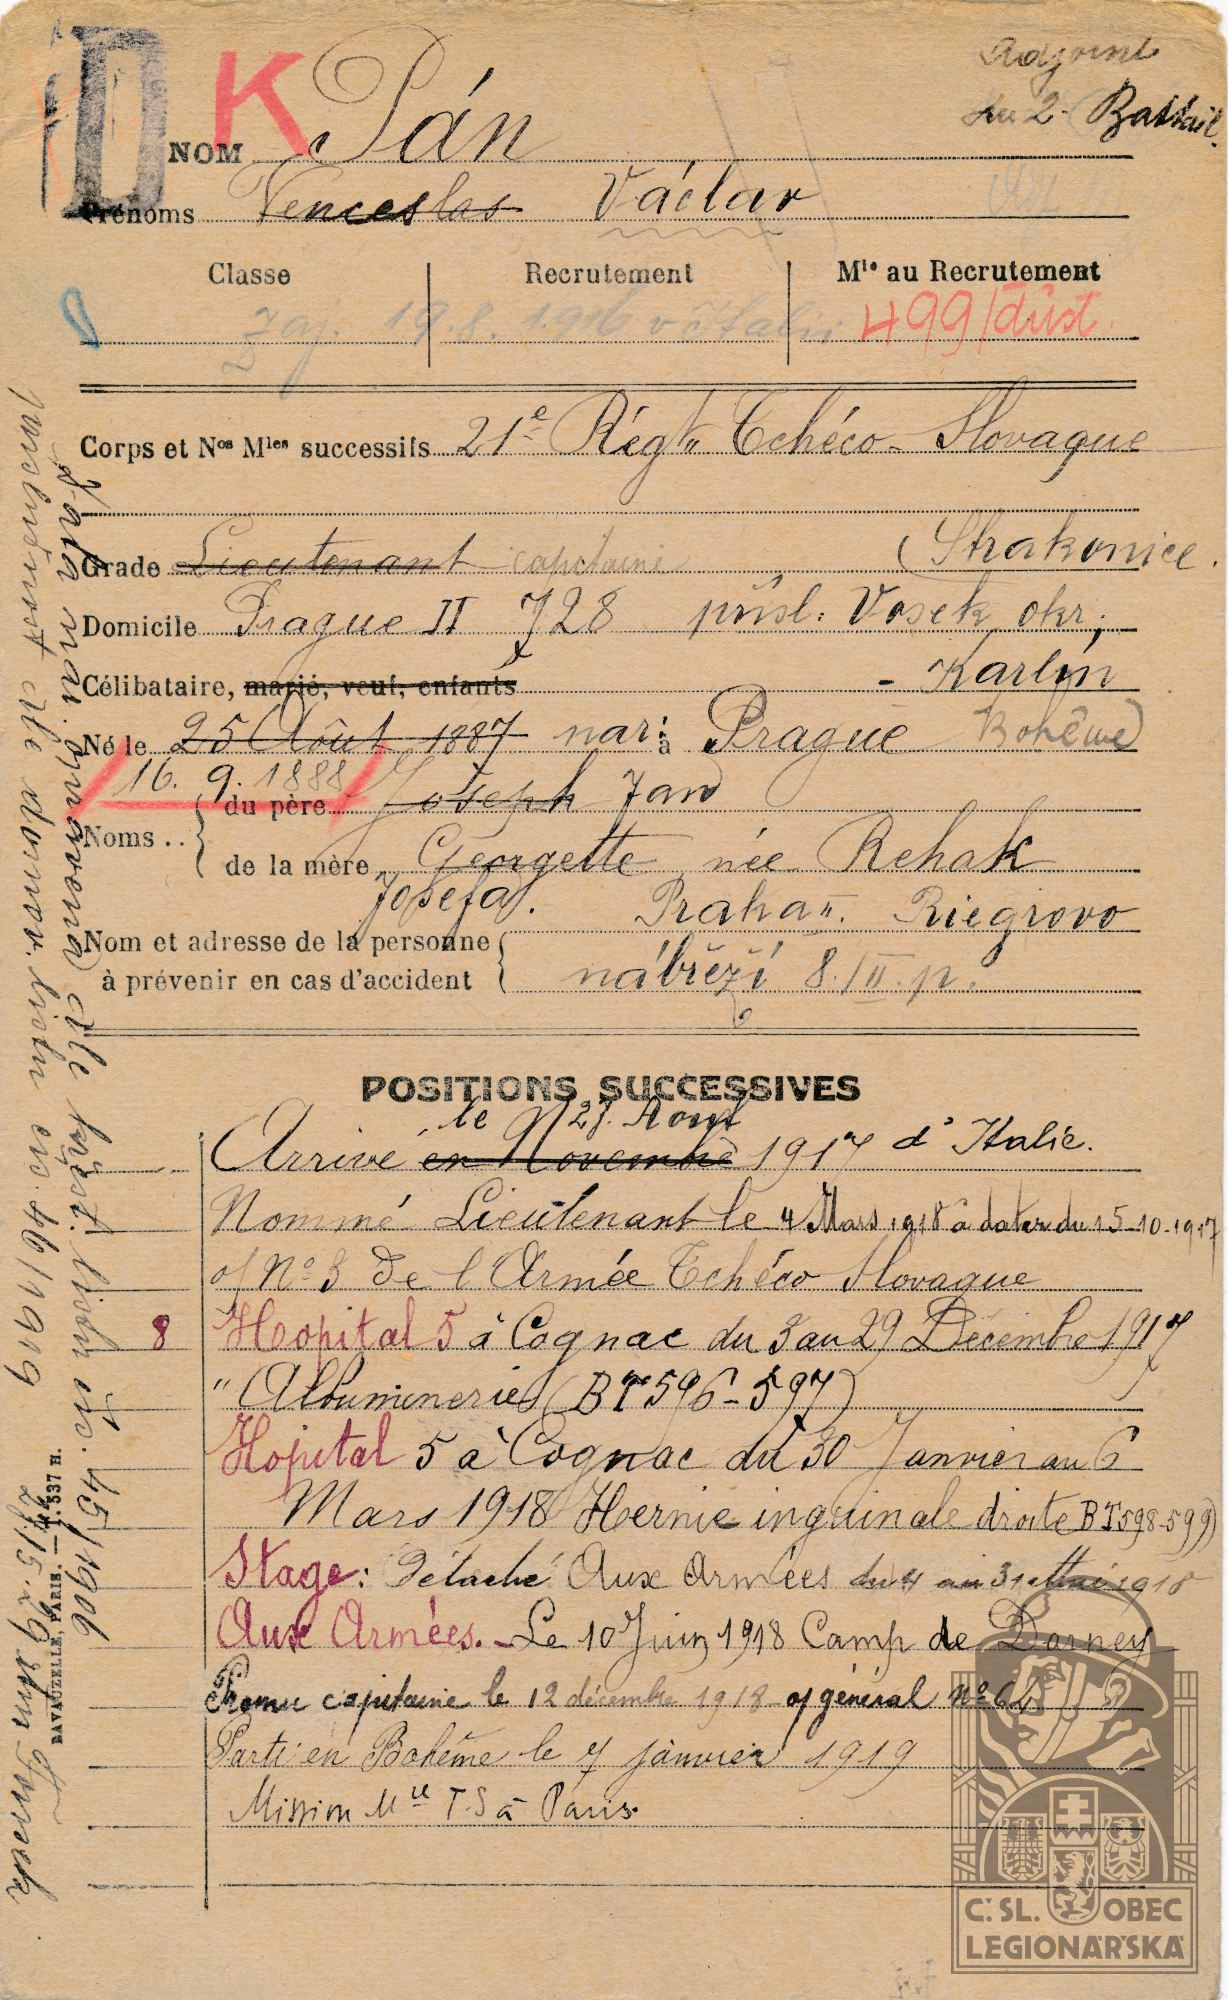 D K
Adjoint
au 2e Batail.
NOM Pán
Prénoms Venceslas Václav
Classe Recrutement Mle au Recrutement
8 Zaj. 19.8.1916 v Italii 499/dûst.
Corps et Nos Mles successifs 21e Régt Tchéco-Slovaque
Grade Lieutenant capitaine (Strakonice.
Domicile Prague II 728 přísl: Vosek okr.
Célibataire, marié, veuf, enfants - Karlín
Né le 25 Août 1887 nar: à Prague Bohême
16. 9. 1888
Noms .. du père Joseph Jan
de la mère Georgette née Rehak
Josefa. Praha II. Riegrovo
Nom et adresse de la personne
à prévenir en cas d'accident nábřeží 8/II. p.
POSITIONS SUCCESSIVES
le 28. Aout
Arrivé en Novembre 1917 d'Italie.
Nommé Lieutenant le 4 Mars 1918 à dater du 15-10-1917
o/ No 3 de l'Armée Tchéco Slovaque
8 Hopital 5 à Cognac du 3 au 29 Décembre 1917
" Albuminerie (BT 596-597)
Hopital 5 à Cognac du 30 Janvier au 6
Mars 1918 Hernie inguinale droite BT 598-599)
Stage: Détaché Aux Armées du 4 au 31 Mai 1918
Aux Armées. - Le 10 Juin 1918 Camp de Darney
Promu capitaine le 12 décembre 1918 o/ général No 62
Parti en Bohême le 7 janvier 1919
Mission Mre T.S à Paris.
čís. 45/1906
čís. 46/1909
LAVAUZELLE, PARIS. 537 H.
Č. SL. OBEC
LEGIONÁŘSKÁ